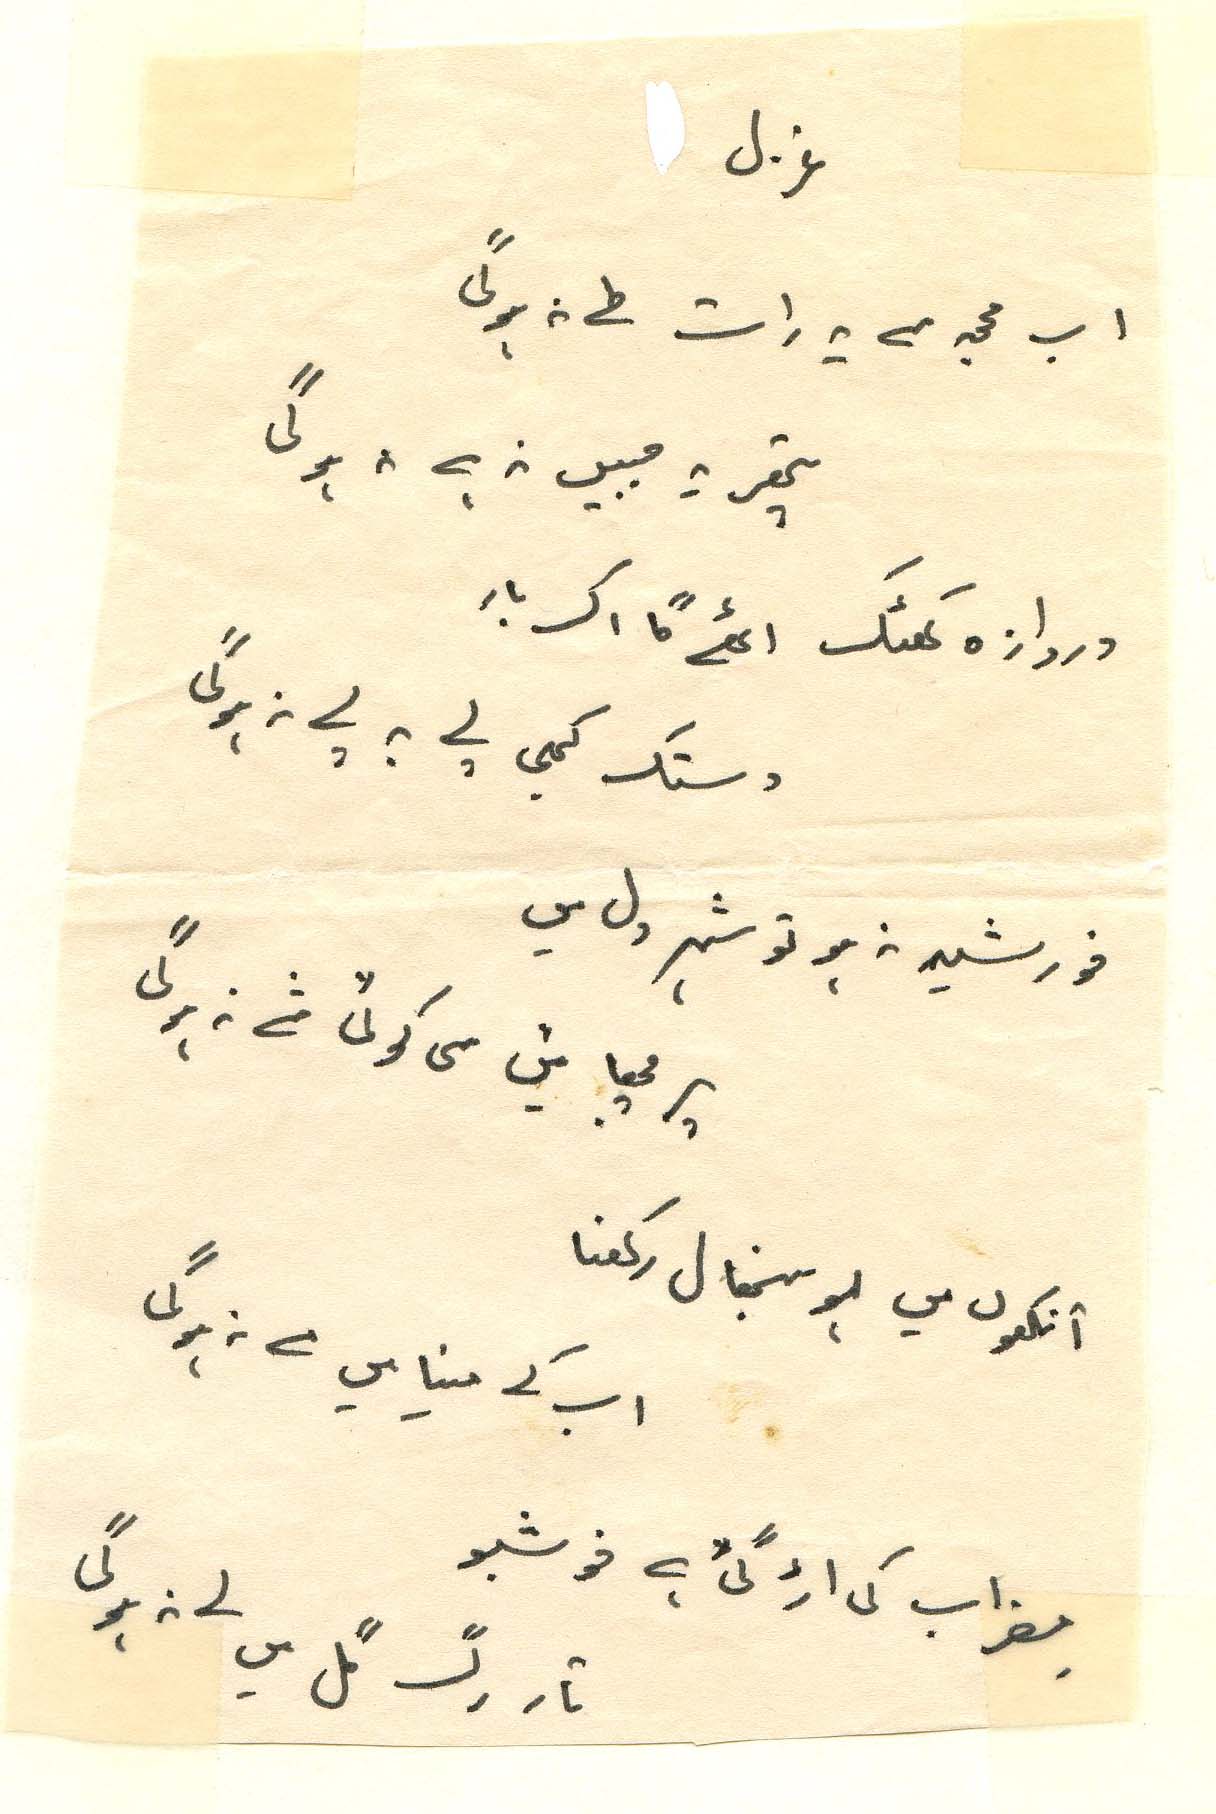 غزل
اب مجھ سے یہ رات طے نہ ہوگی
پتھر یہ جبیں نہ ہے نہ ہوگی
دروازہ کھٹک اٹھے گا اک بار
دستک کبھی پے بہ پے نہ ہوگی
خورشید نہ ہو تو شہر دل میں
پرچھائیں سی کوئی شے نہ ہوگی
آنکھوں میں لہو سنبھال رکھنا
اب کے مینا میں مے نہ ہوگی
مضراب کی اڑ گئی ہے خوشبو
تار رگ گل میں لے نہ ہوگی